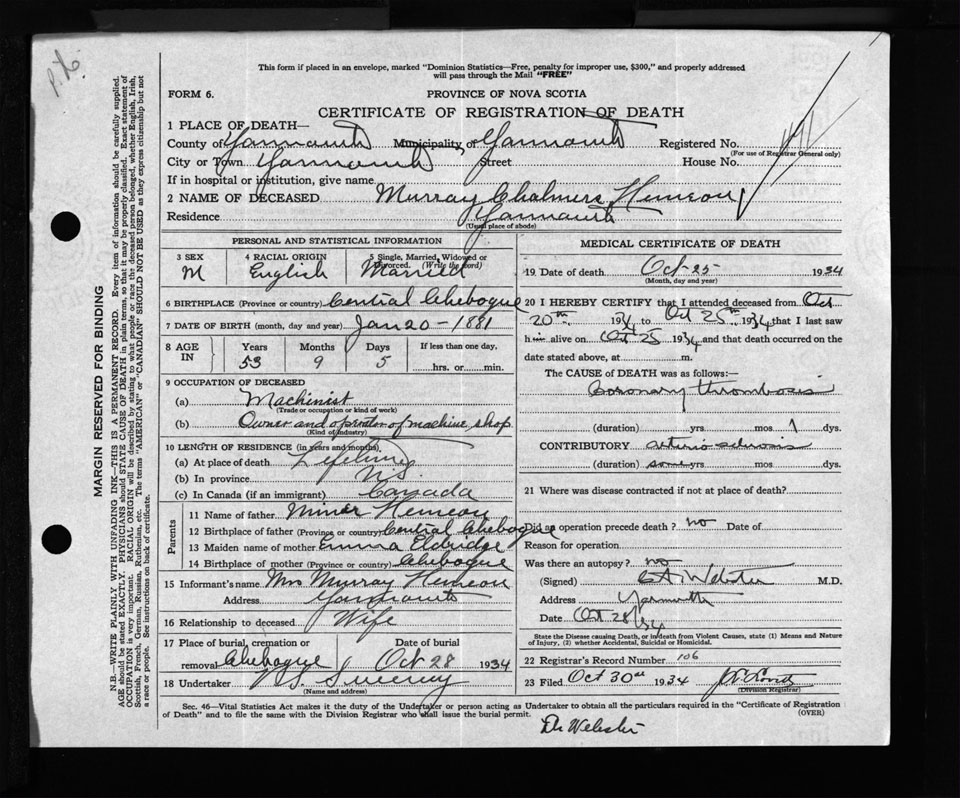 This form if placed in an envelope, marked "Dominion Statistics—Free, penalty for improper use, $300," and properly addressed
will pass through the Mail "FREE"
FORM 6.
PROVINCE OF NOVA SCOTIA
CERTIFICATE OF REGISTRATION OF DEATH
1 PLACE OF DEATH—
County of Yarmouth Municipality of Yarmouth Registered No.
(For use of Registrar General only)
City or Town Yarmouth Street House No.
If in hospital or institution, give name
2 NAME OF DECEASED Murray Chalmers Hemeon
Residence Yarmouth
(Usual place of abode)
PERSONAL AND STATISTICAL INFORMATION
3 SEX M
4 RACIAL ORIGIN English
5 Single, Married, Widowed or Divorced. (Write the word) Married
6 BIRTHPLACE (Province or country) Central Chebogue
7 DATE OF BIRTH (month, day and year) Jan 20 - 1881
8 AGE IN Years 53 Months 9 Days 5 If less than one day, hrs. or min.
9 OCCUPATION OF DECEASED
(a) Machinist
(Trade or occupation or kind of work)
(b) Owner and operator of machine shop
(Kind of industry)
10 LENGTH OF RESIDENCE (in years and months)
(a) At place of death Lifetime
(b) In province N.S.
(c) In Canada (if an immigrant) Canada
Parents
11 Name of father Miner Hemeon
12 Birthplace of father (Province or country) Central Chebogue
13 Maiden name of mother Emma Eldridge
14 Birthplace of mother (Province or country) Chebogue
15 Informant's name Mrs Murray Hemeon
Address Yarmouth
16 Relationship to deceased Wife
17 Place of burial, cremation or removal Chebogue Date of burial Oct 28 1934
18 Undertaker Sweeney
(Name and address)
MEDICAL CERTIFICATE OF DEATH
19 Date of death Oct-25 1934
(Month, day and year)
20 I HEREBY CERTIFY that I attended deceased from Oct
20th 1934 to Oct 25th 1934 that I last saw
him alive on Oct 25 1934 and that death occurred on the
date stated above, at m.
The CAUSE of DEATH was as follows:—
Coronary thrombosis
(duration) yrs mos 1 dys.
CONTRIBUTORY arterio sclerosis
(duration) some yrs mos dys.
21 Where was disease contracted if not at place of death?
Did an operation precede death? no Date of
Reason for operation
Was there an autopsy? no
(Signed) Webster M.D.
Address Yarmouth
Date Oct 28/34
State the Disease causing Death, or in death from Violent Causes, state (1) Means and Nature
of Injury, (2) whether Accidental, Suicidal or Homicidal.
22 Registrar's Record Number 106
23 Filed Oct 30th 1934
(Division Registrar)
Sec. 46—Vital Statistics Act makes it the duty of the Undertaker or person acting as Undertaker to obtain all the particulars required in the "Certificate of Registration
of Death" and to file the same with the Division Registrar who shall issue the burial permit.
(OVER)
Dr Webster
MARGIN RESERVED FOR BINDING
N.B.—WRITE PLAINLY WITH UNFADING INK—THIS IS A PERMANENT RECORD. Every item of information should be carefully supplied.
AGE should be stated EXACTLY. PHYSICIANS should STATE CAUSE OF DEATH in plain terms, so that it may be properly classified. Exact statement of
OCCUPATION is very important. RACIAL ORIGIN will be described by stating to what people or race the deceased person belonged, whether English, Irish,
Scottish, French, German, Russian, Ruthenian, etc. The terms "AMERICAN" or "CANADIAN" SHOULD NOT BE USED as they express citizenship but not
a race or people. See instructions on back of certificate.